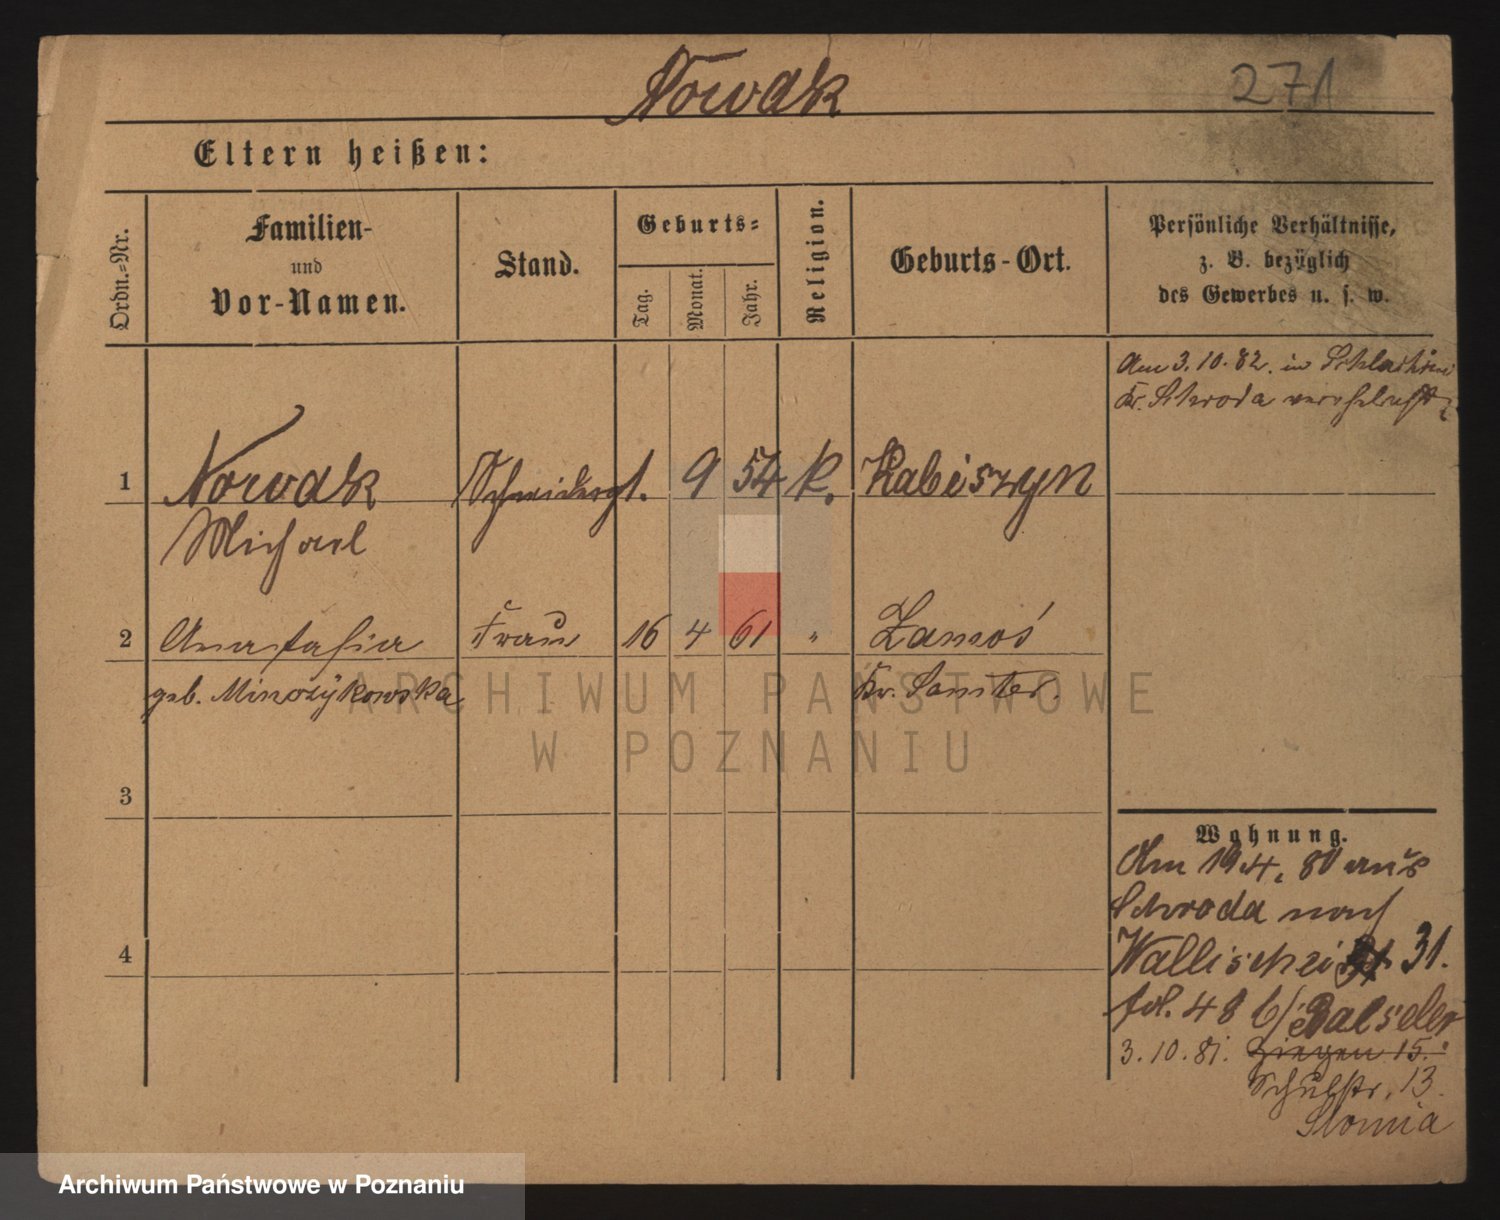 Nowak
271
Eltern heißen:
Ordn.=Nr.
Familien-
und
Vor-Namen.
Stand.
Geburts=
Tag.
Monat.
Jahr.
Religion.
Geburts-Ort.
Persönliche Verhältnisse,
z. B. bezüglich
des Gewerbes u. s. w.
Am 3.10.82. in
Kr. Schroda verehelicht
1 Nowak Schneiderg. 9 54 k.
Michael
2 Anastasia Frau 16 4 61 " Zamość
geb. Kr. Samter.
3
4
Wohnung.
Am 19.4. 80 aus
Schroda nach
Wallischei 31.
fol. 48 b/
3.10.81. Ziegen 15.
Schulstr. 13.
ARCHIWUM PAŃSTWOWE
W POZNANIU
Archiwum Państwowe w Poznaniu